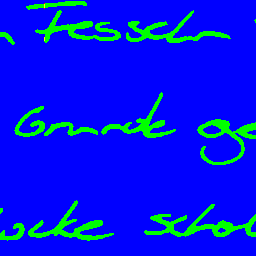 Fesseln
Grunde ge
ocke schol